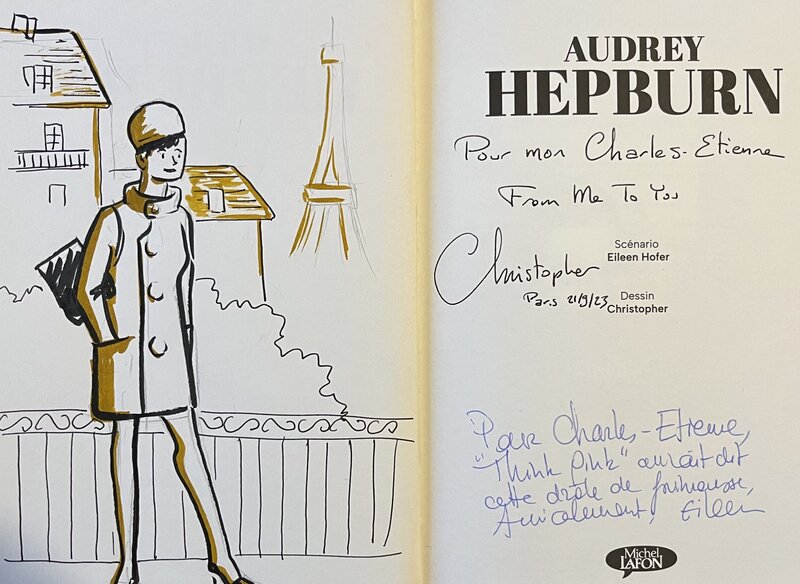 AUDREY
HEPBURN
Pour mon Charles-Etienne
From Me To You
Christopher
Paris 21/9/23
Scénario
Eileen Hofer
Dessin
Christopher
Pour Charles-Etienne,
"Think Pink" aurait dit
cette drôle de frimousse,
Amicalement, Eileen
Michel
LAFON